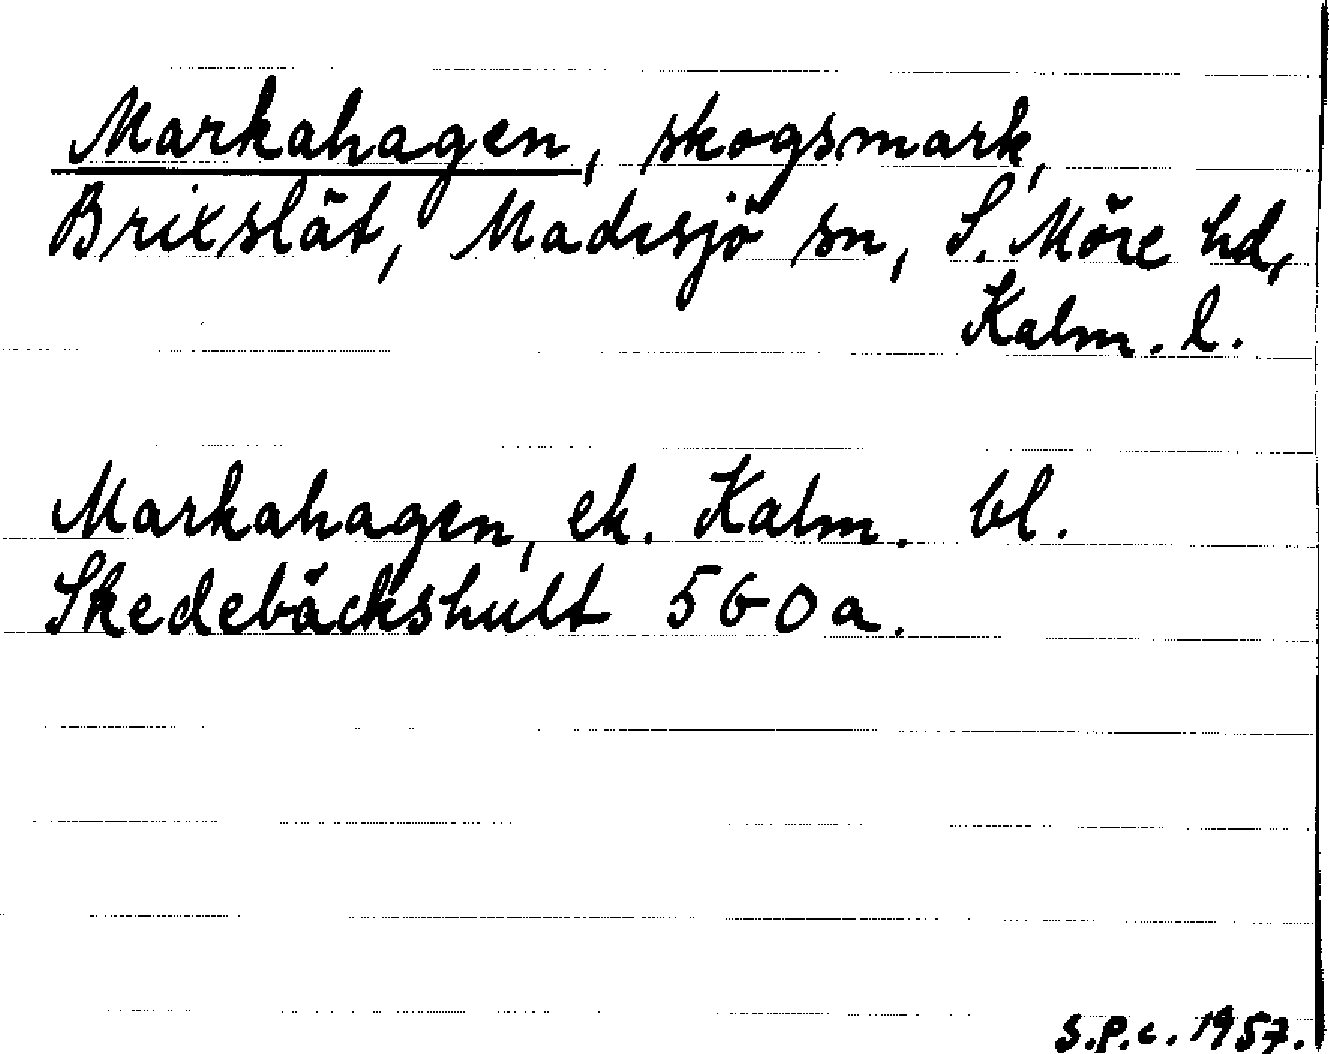 Markahagen, skogsmark,
Brixslät, Madesjö sn, S. Möre hd,
Kalm. l.
Markahagen, ek. Kalm. bl.
Skedebäckshult 5 G 0 a.
S.P.c. 1957.